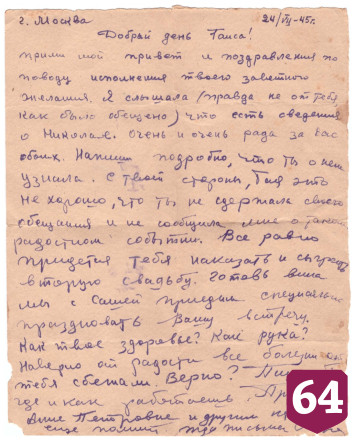 г. Москва 24/VII-45г.
Добрый день Таиса!
прими мой привет и поздравления по
поводу исполнения твоего заветного
желания. Я слышала (правда не от тебя
как было обещено) что есть сведения
о Николае. Очень и очень рада за вас
обоих. Напиши подробно, что ты о нем
узнала. С твоей стороны, Тая это
не хорошо, что ты не сдержала своего
обещания и не сообщила мне о таком
радостном событии. Все равно
придется тебя наказать и сыграть
вторую свадьбу. Готовь вина
мы с Сашей приедим специально
праздновать Вашу встречу.
Как твое здоровье? Как рука?
Наверно от радости все болезни от
тебя сбежали. Верно?
где и как работаешь.
Вите Петровне и другим
еще помнит. Жду письма
64